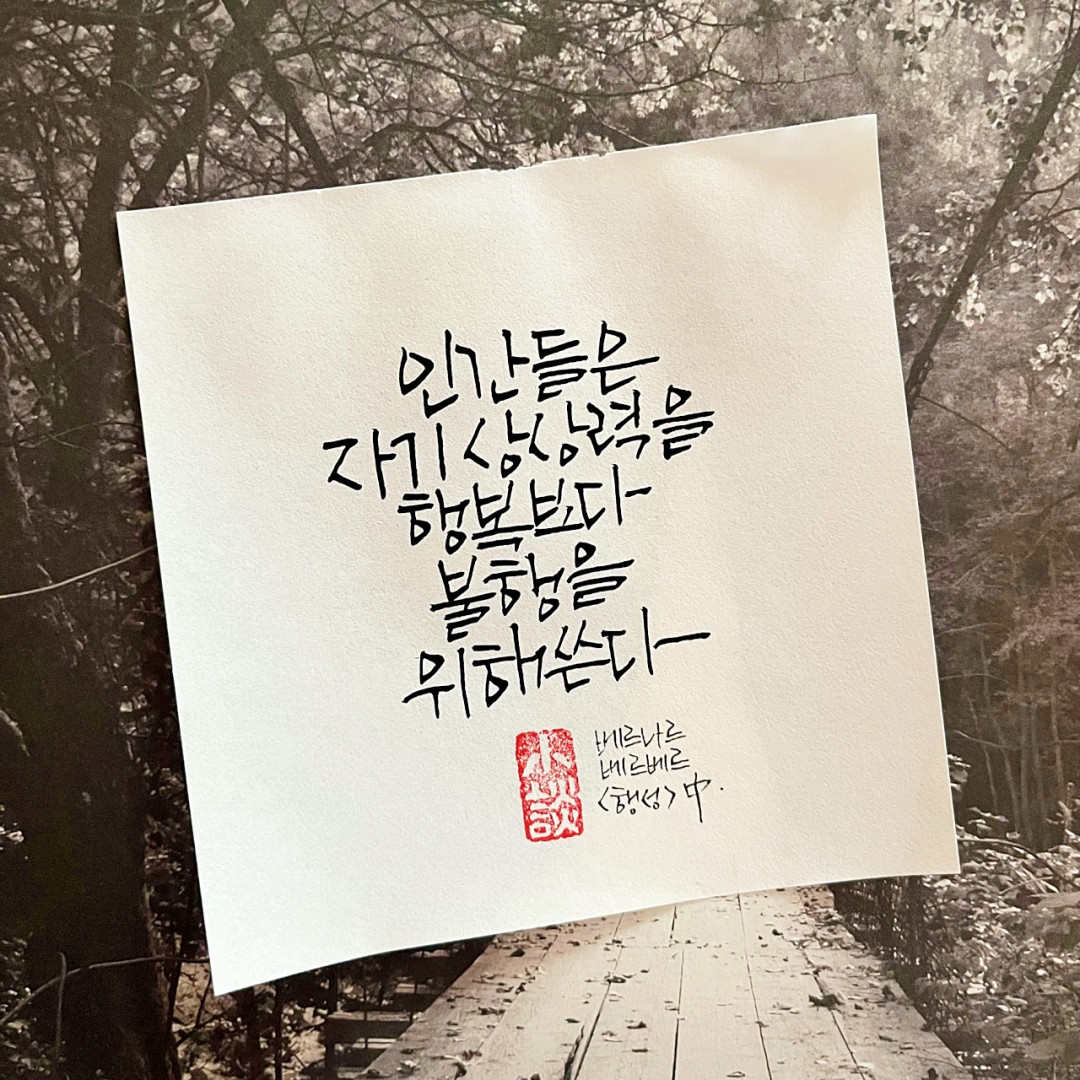 인간들은
자기 상상력을
행복보다
불행을
위해 쓴다
베르나르
베르베르
<행성> 中.
小談